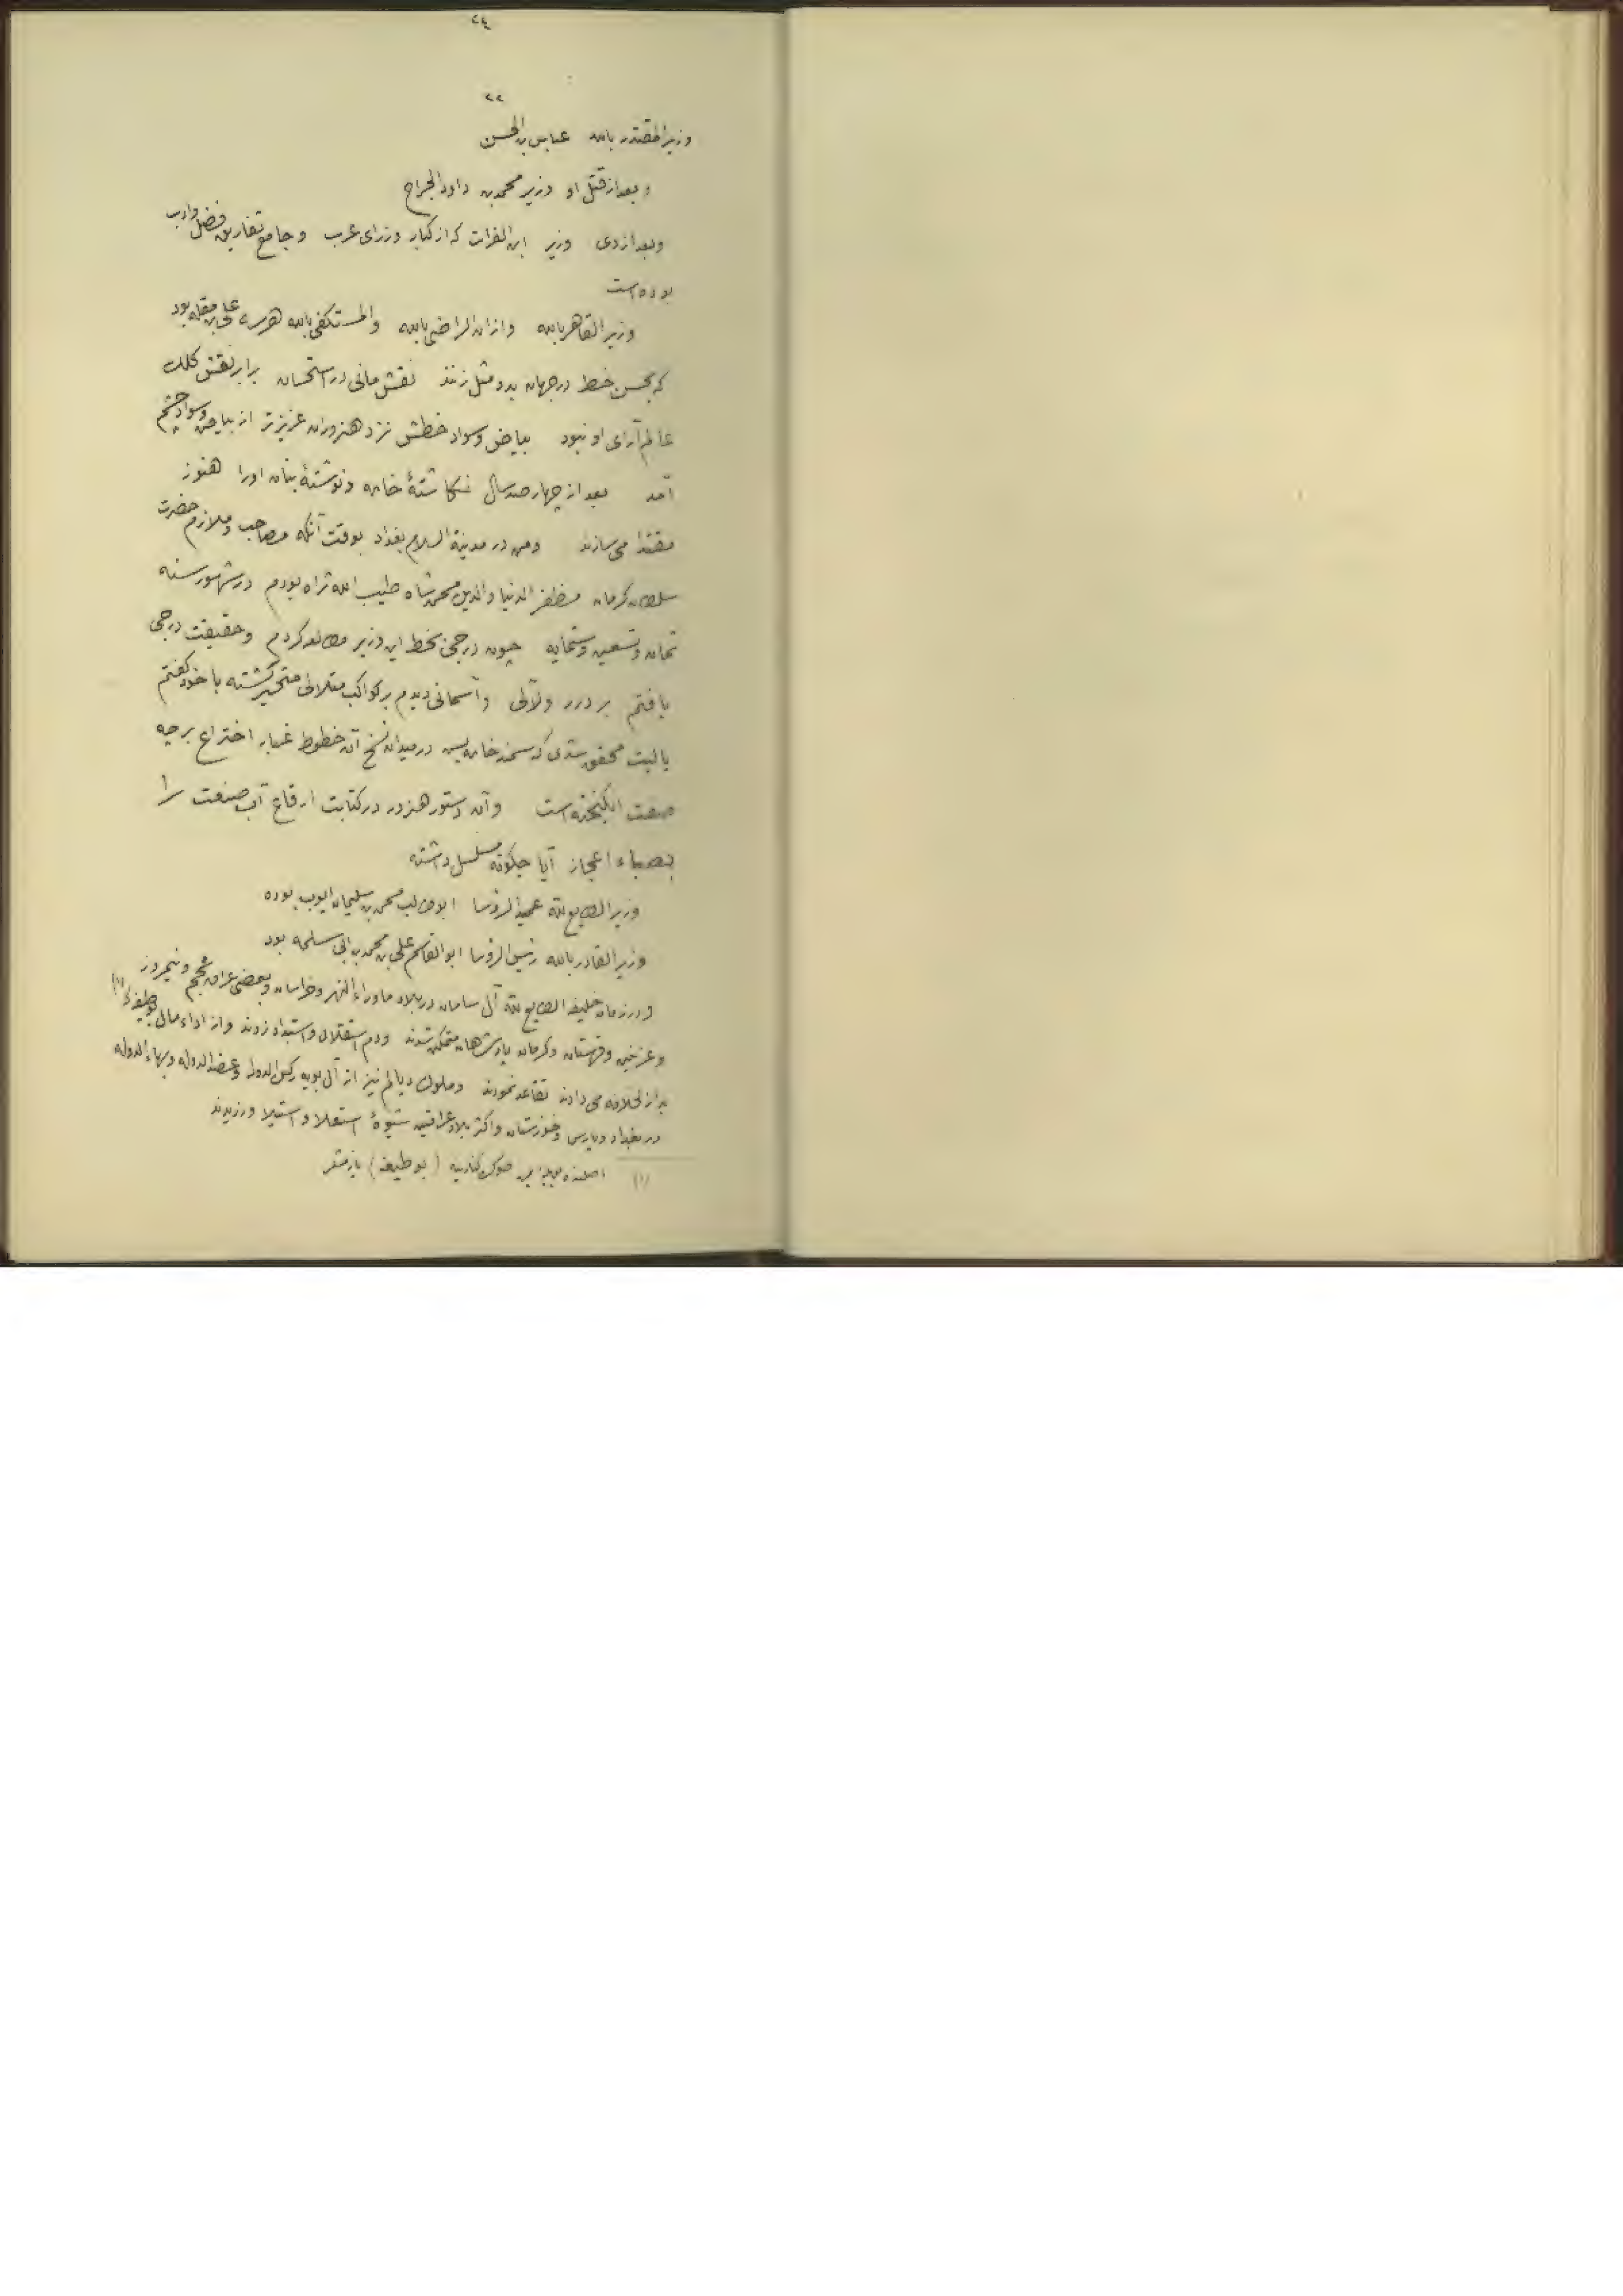 ٢٤
٢٢
وزیر المقتدر بالله عباس بن الحسن
وبعد از قتل او وزیر محمد بن داود الجراح
وبعد از وی وزیر ابن الفرات که از کبار وزرای عرب وجامع تفاریق فضل وادب
بوده است
وزیر القاهر بالله واز ان الراضی بالله والمستکفی بالله هرسه علی بن مقله بود
که بحسن خط در جهان بدو مثل زنند نقش مانی در استحسان برابر نقش کلک
عالم آرای او نبود بیاض وسواد خطش نزد هنروران عزیزتر از بیاض وسواد چشم
آمد بعد از چهار صد سال نگاشتهٔ خامه ونوشتهٔ بنان اورا هنوز
مقتدا می سازند ومن در مدینة السلام بغداد بوقت آنکه مصاحب وملازم حضرت
سلطان کرمان مظفر الدنیا والدین محمد شاه طیب الله ثراه بودم در شهور سنه
ثمان وتسعین وستمایه چون درجی بخط این وزیر مطالعه کردم وحقیقت درجی
یافتم پر درر ولآلی وآسمانی دیدم پر کواکب متلالی متحیر گشته با خود گفتم
یا لیت محقق شدی که سمند خامه پس در میدان نسخ آن خطوط غبار اختراع بر چه
صفت انگیخته است وآن دستور هنرور در کتابت ارقاع آب صنعت را
بصباء اعجاز آیا چگونه مسلسل داشته
وزیر الطایع لله عمید الرؤسا ابو طالب محمد بن سلیمان ایوب بوده
وزیر القادر بالله رئیس الرؤسا ابو القاسم علی بن محمد بن ابی سلمه بود
ودر زمان خلیفه الطایع لله آل سامان در بلاد ماوراء النهر وخراسان وبعضی عراق عجم ونیمروز
وغزنین وقهستان وکرمان پادشاهان متمکن شدند ودم استقلال واستبداد زدند واز اداء مالی بوظیفه که (١)
بدار لخلافه می دادند تقاعد نمودند وملوک دیالم نیز از آل بویه رکن الدوله وعضد الدوله وبهاء الدوله
در بغداد وپارس وخوزستان واکثر بلاد عراقین شیوهٔ استعلا واستیلا ورزیدند
(١) اصلنده کنارینه (بو طیفه) یازمشدر